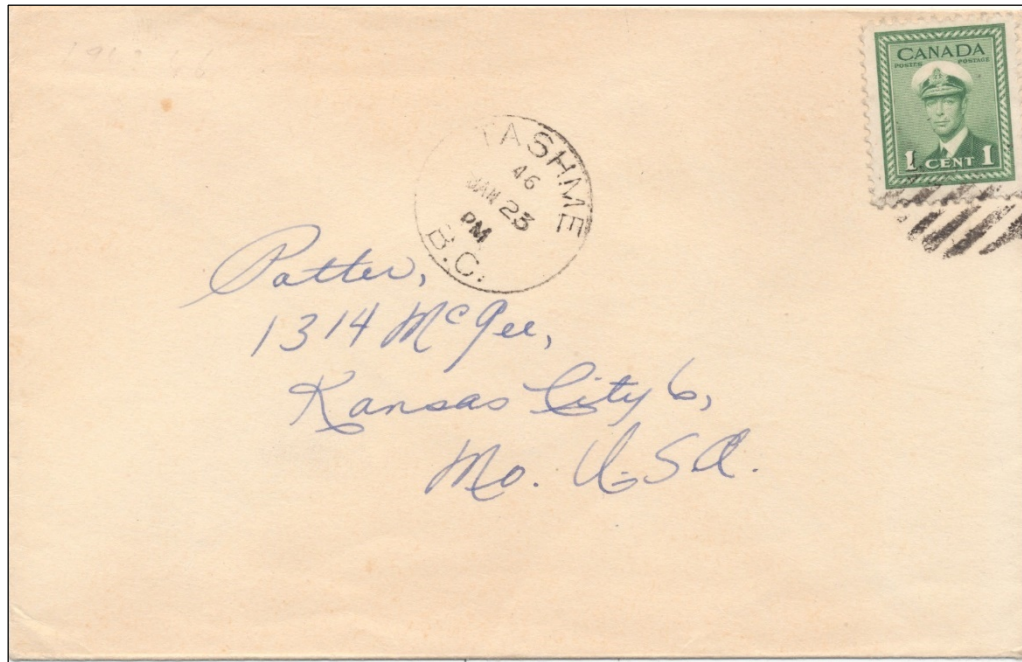 CANADA
POSTES POSTAGE
1 CENT 1
TASHME
46
JAN 23
PM
B.C.
Patter,
1314 McGee,
Kansas City 6,
Mo. U.S.A.